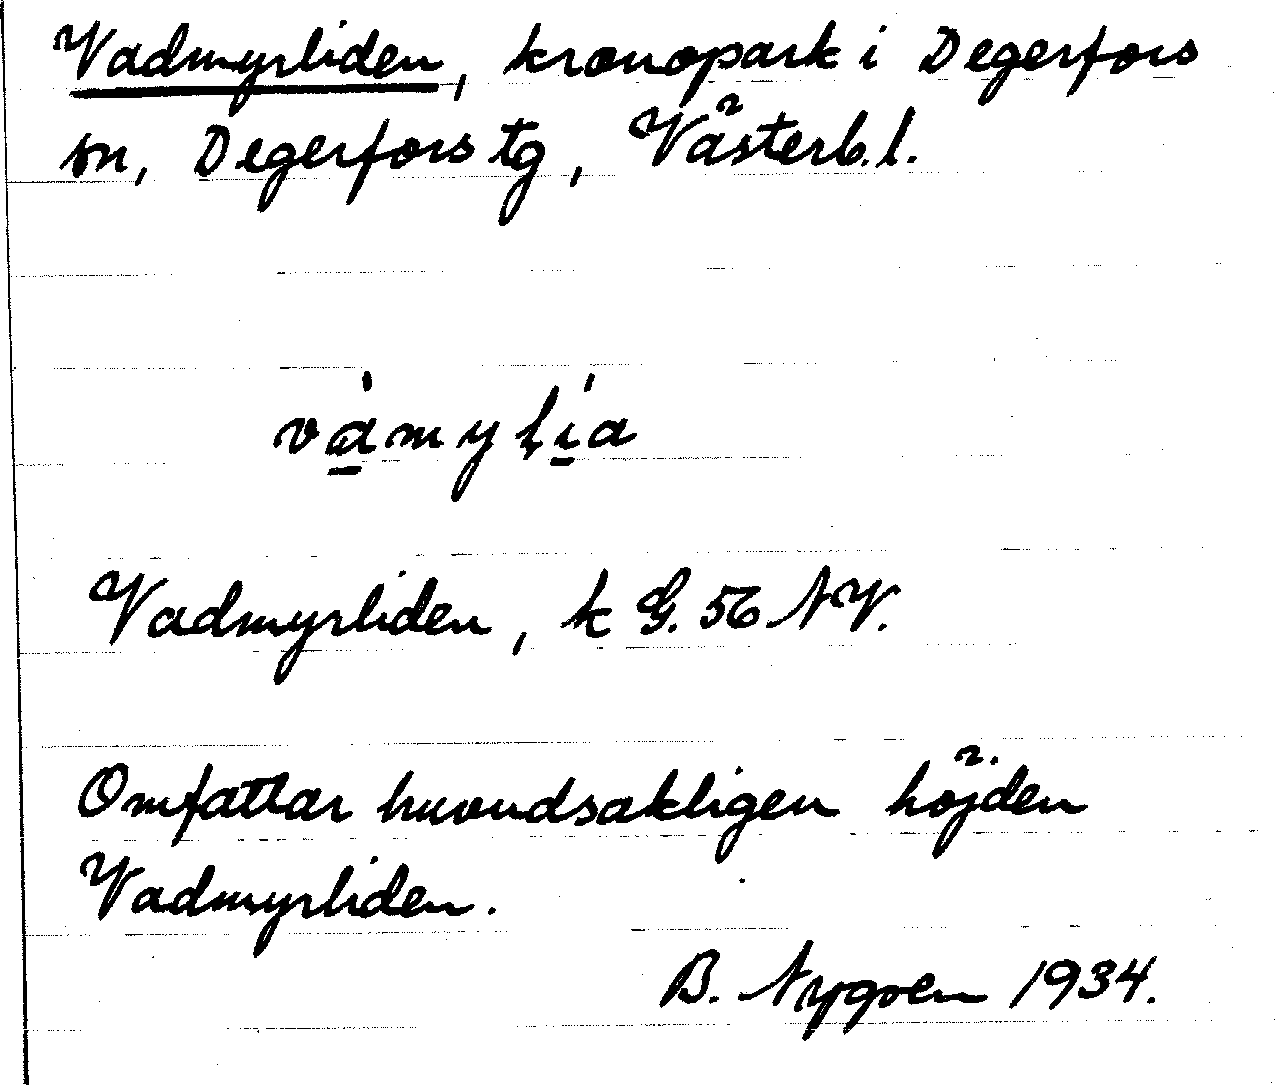 Vadmyrliden, kronopark i Degerfors
sn, Degerfors tg, Västerb. l.
våmylia
Vadmyrliden, k G. 56 NV.
Omfattar huvudsakligen höjden
Vadmyrliden.
B. Nygren 1934.